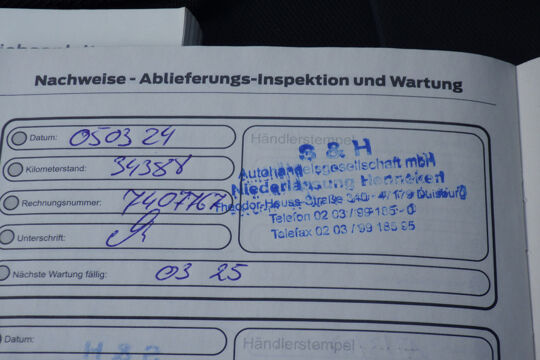 Nachweise - Ablieferungs-Inspektion und Wartung
Datum: 050324
Händlerstempel
S & H
Kilometerstand: 34388
Autohandelsgesellschaft mbH
Niederlassung Hennekerl
Rechnungsnummer: 7407767
Theodor-Heuss-Straße 47179 Duisburg
Telefon 02 03 / 99 185-0
Unterschrift:
Telefax 02 03 / 99 185 95
Nächste Wartung fällig: 03 25
Datum:
Händlerstempel